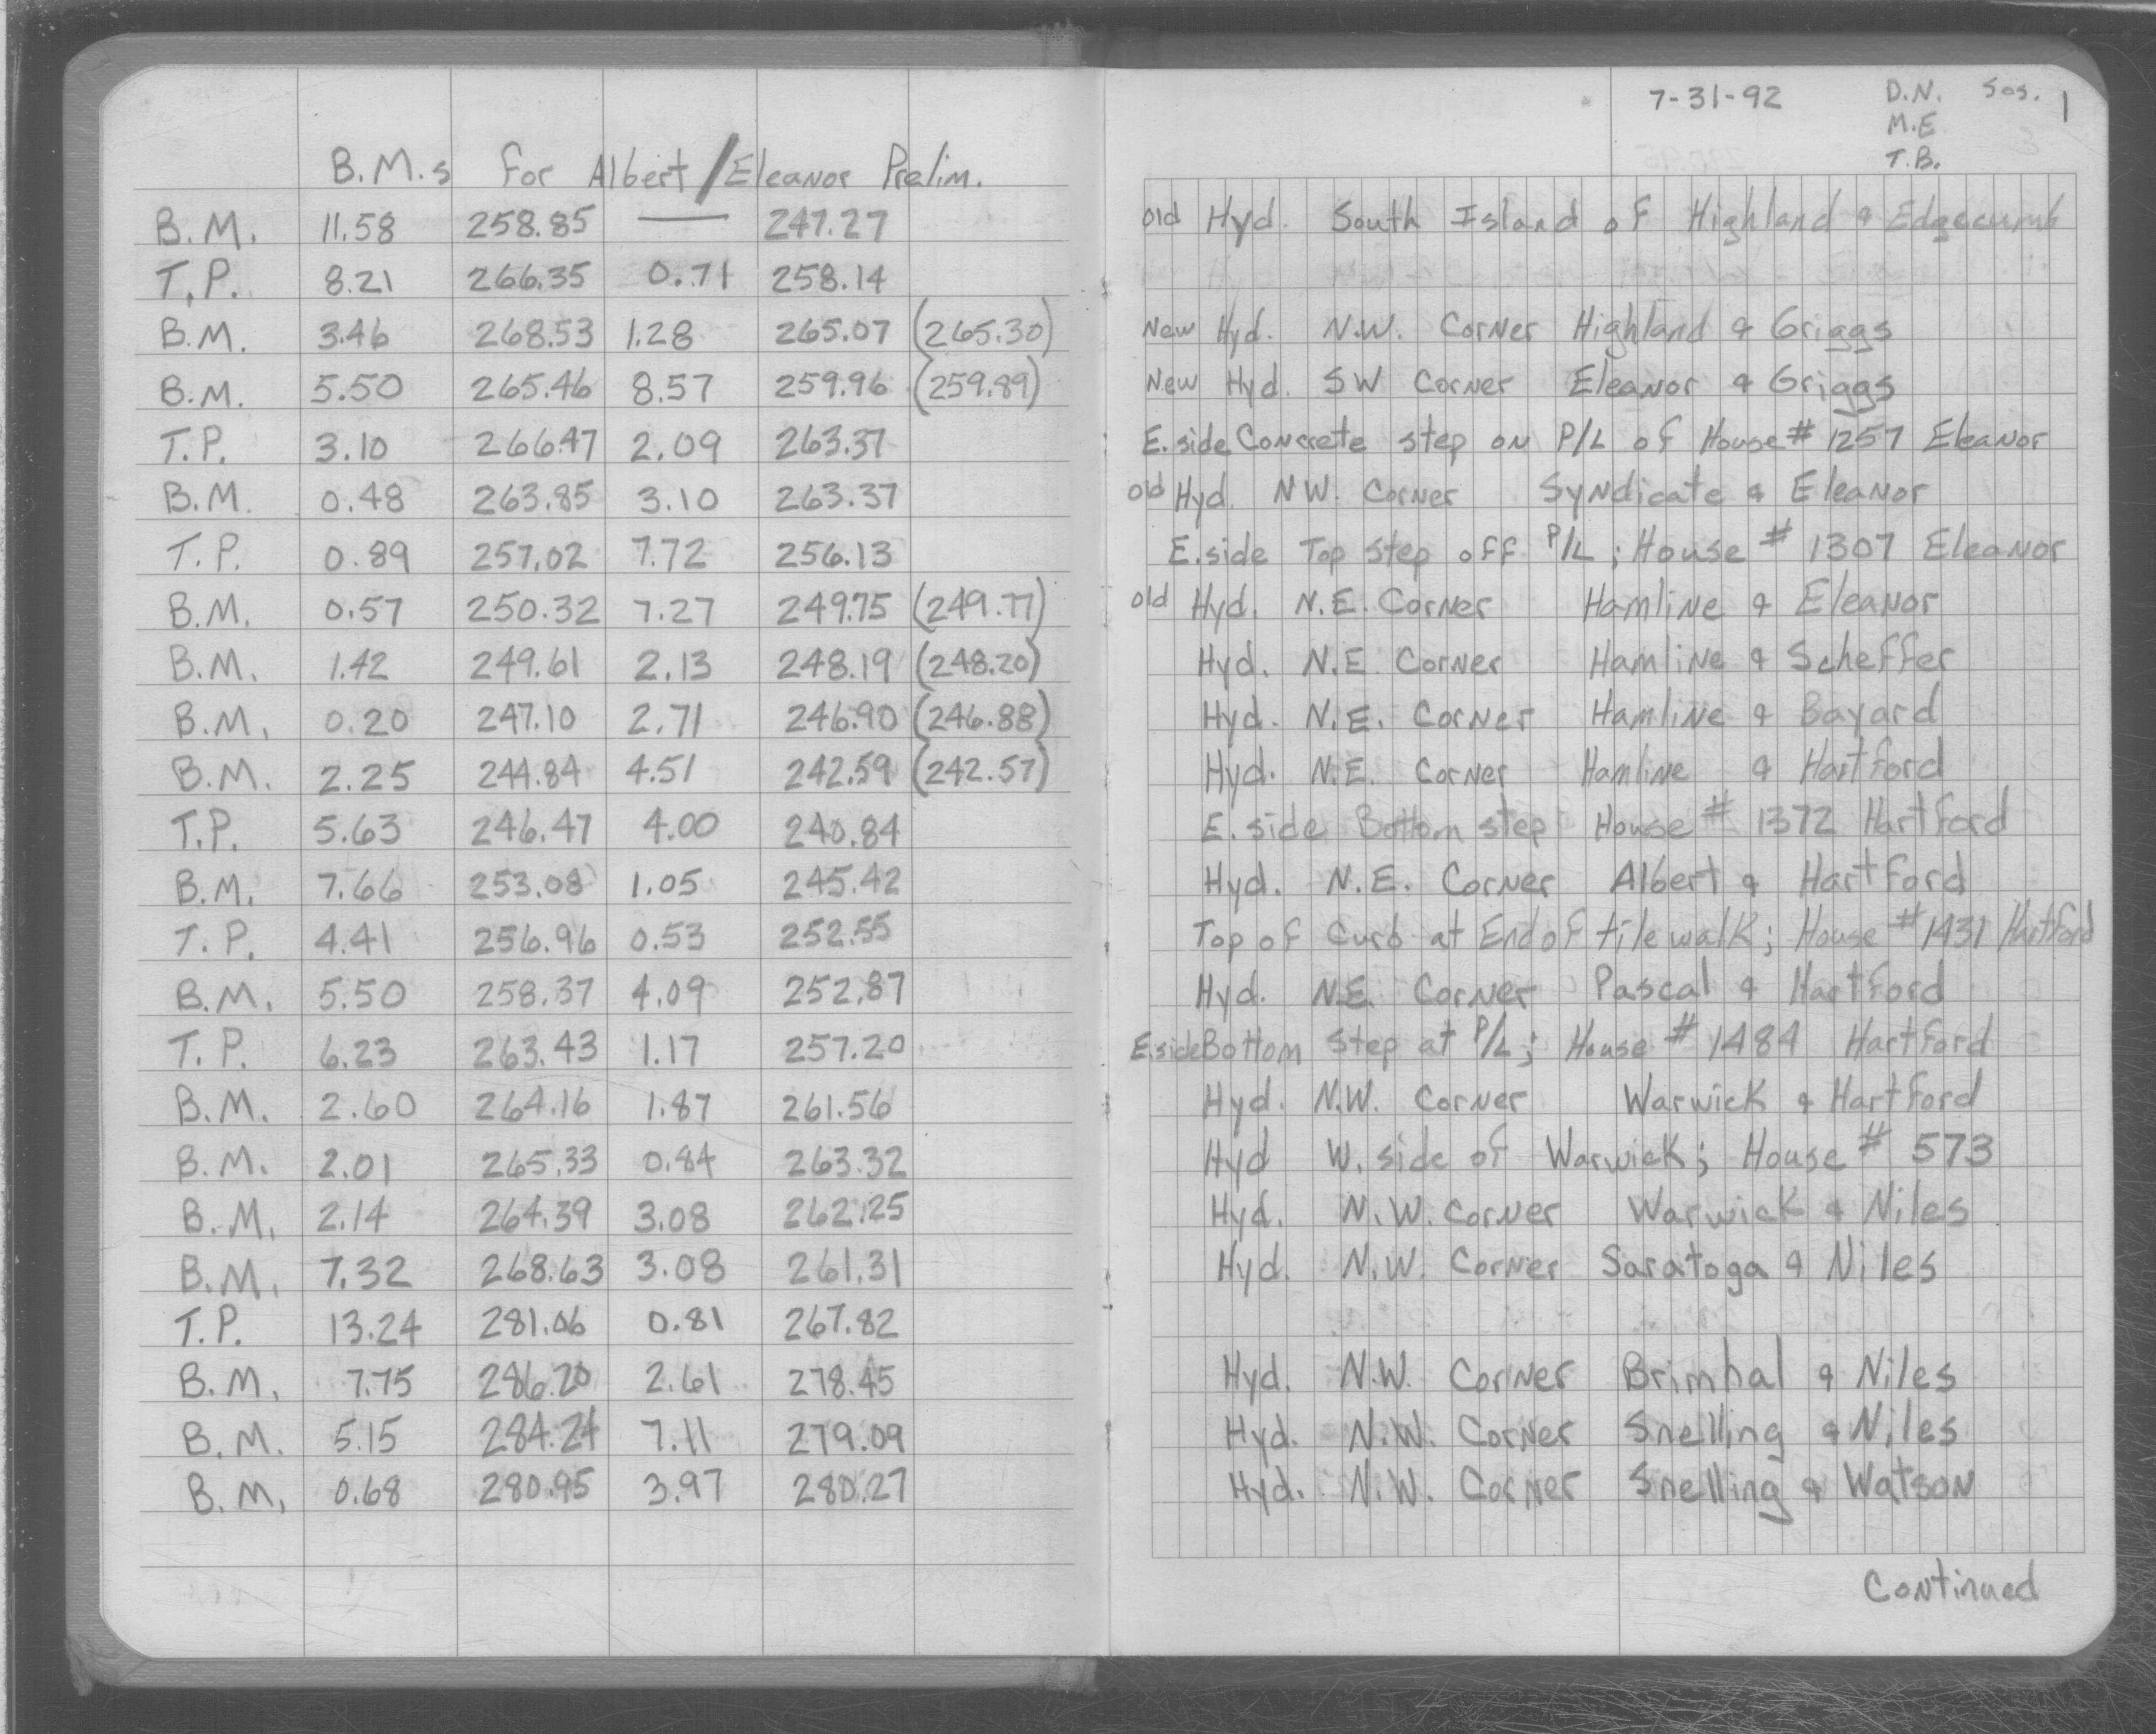 7-31-92 D.N. Sos. 1
M.E
T.B.
B.M.s For Albert / Eleanor Prelim.
B.M. 11.58 258.85 — 247.27 old Hyd. South Island of Highland & Edgecumb
T.P. 8.21 266.35 0.71 258.14
B.M. 3.46 268.53 1.28 265.07 (265.30) New Hyd. N.W. Corner Highland & Griggs
B.M. 5.50 265.46 8.57 259.96 (259.89) New Hyd. SW Corner Eleanor & Griggs
T.P. 3.10 266.47 2.09 263.37 E. side Concrete step on P/L of House # 1257 Eleanor
B.M. 0.48 263.85 3.10 263.37 old Hyd. NW. Corner Syndicate & Eleanor
T.P. 0.89 257.02 7.72 256.13 E. side Top step off P/L; House # 1307 Eleanor
B.M. 0.57 250.32 7.27 249.75 (249.77) old Hyd. N.E. Corner Hamline & Eleanor
B.M. 1.42 249.61 2.13 248.19 (248.20) Hyd. N.E. Corner Hamline & Scheffer
B.M. 0.20 247.10 2.71 246.90 (246.88) Hyd. N.E. Corner Hamline & Bayard
B.M. 2.25 244.84 4.51 242.59 (242.57) Hyd. N.E. Corner Hamline & Hartford
T.P. 5.63 246.47 4.00 240.84 E. side Bottom step House # 1372 Hartford
B.M. 7.66 253.08 1.05 245.42 Hyd. N.E. Corner Albert & Hartford
T.P. 4.41 256.96 0.53 252.55 Top of Curb at End of tile walk; House # 1431 Hartford
B.M. 5.50 258.37 4.09 252.87 Hyd. N.E. Corner Pascal & Hartford
T.P. 6.23 263.43 1.17 257.20 E. side Bottom step at P/L; House # 1484 Hartford
B.M. 2.60 264.16 1.87 261.56 Hyd. N.W. Corner Warwick & Hartford
B.M. 2.01 265.33 0.84 263.32 Hyd W. side of Warwick; House # 573
B.M. 2.14 264.39 3.08 262.25 Hyd. N.W. Corner Warwick & Niles
B.M. 7.32 268.63 3.08 261.31 Hyd. N.W. Corner Saratoga & Niles
T.P. 13.24 281.06 0.81 267.82
B.M. 7.75 286.20 2.61 278.45 Hyd. N.W. Corner Brimhal & Niles
B.M. 5.15 284.24 7.11 279.09 Hyd. N.W. Corner Snelling & Niles
B.M. 0.68 280.95 3.97 280.27 Hyd. N.W. Corner Snelling & Watson
Continued